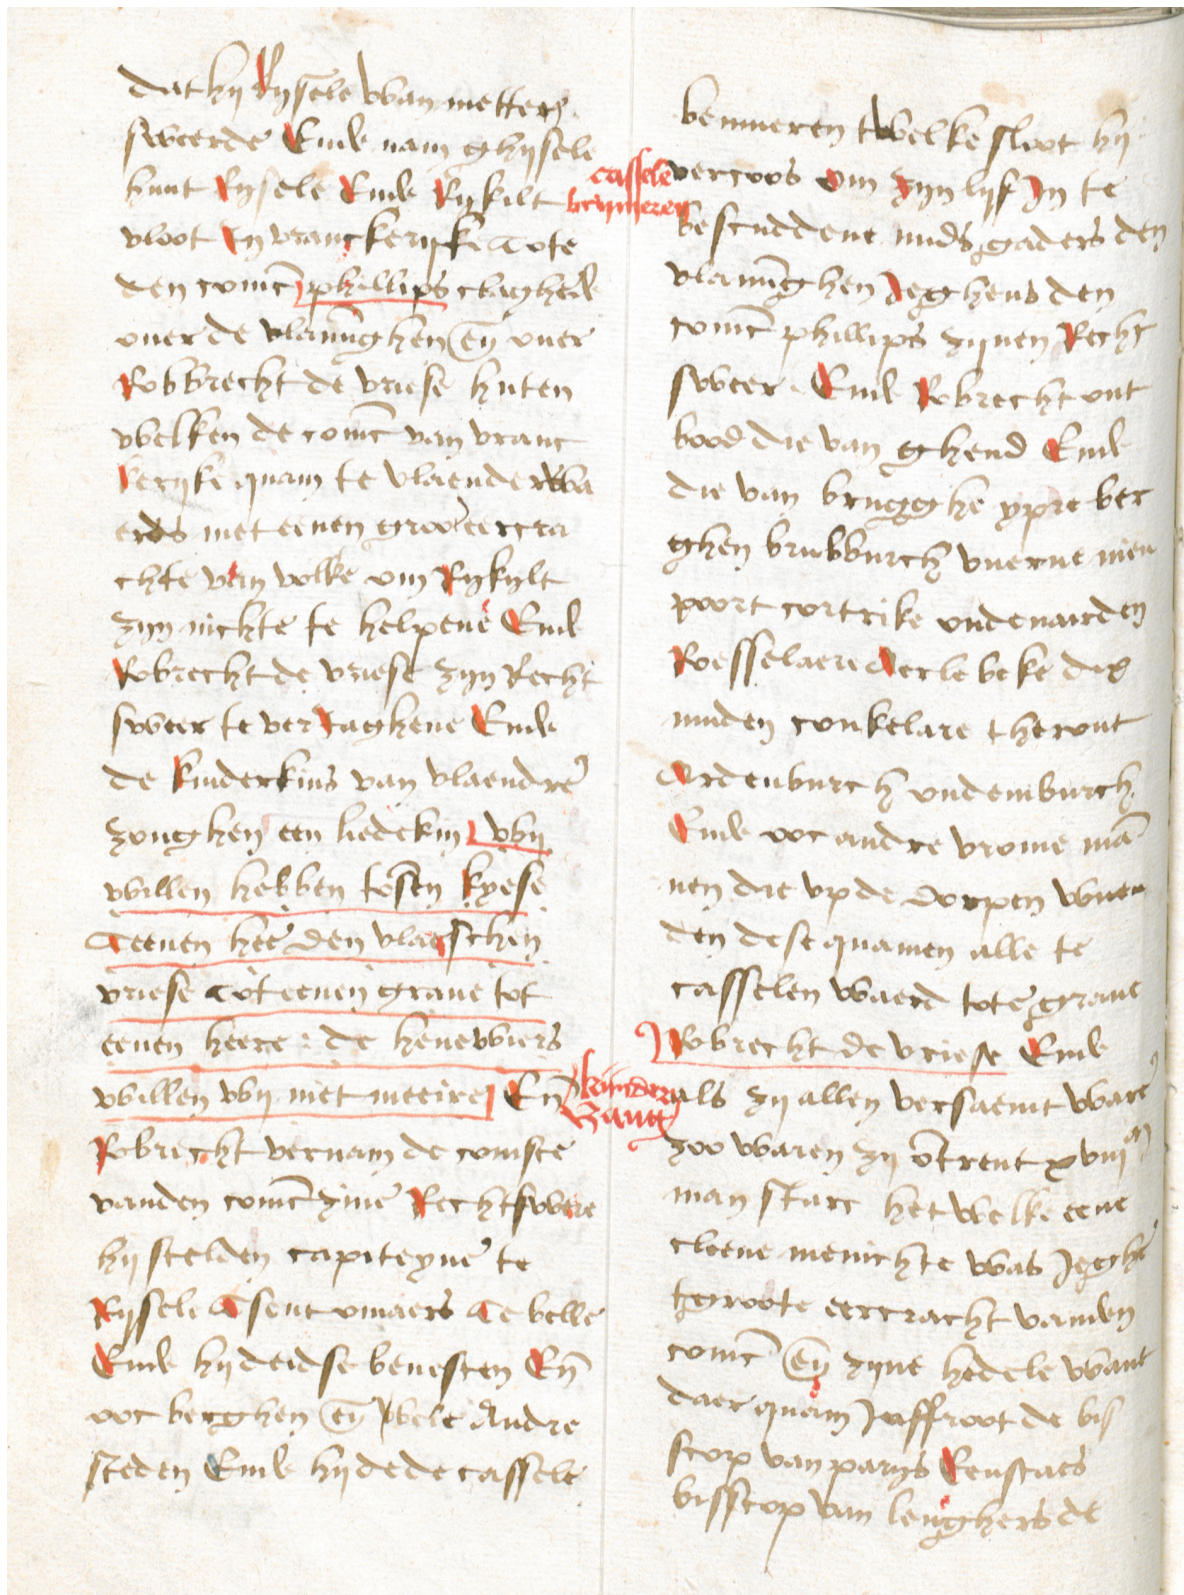 dat hij Rijsele wan metten
sweerde Ende nam ghijsele
huut Rijsele Ende Rijkilt
vloot In vranckerijke Tote
den coninc phillips claghede
over de vlaminghen en over
Robbrecht de vriese huten
welken de coninc van vranc
kerijke quam te vlaenderwa
erds met eenen groote eercra
chte van volke om Rijkilt
zijn nichte te helpene Ende
Robrecht de vriese zijn Recht
sweer te verJaghene Ende
de kinderkins van vlaendre
zonghen een liedekin wij
willen hebben
Teenen heere den vlaeschen
vriese Tot eenen grave tot
eenen heere : de henewiers
willen wij niet meeire En
Robrecht vernam de comste
vanden coninc zine Rechtsweere
hij stelden capiteyne te
Rijsele Tsent omaers Te belle
Ende hij deidse bevesten En
ooc berghen en vele Andre
steden Ende hij dede cassele
cassele
bemueren
kinder
Zanc
bemueren twelke sloot hij
vercoos om zijn lijf In te
bescuddene mids gaders den
vlaminghen Jeghens den
coninc phillips zijnen Recht
sweer. Ende Robrecht ont
bood die van ghend Ende
die van brugghe ypre ber
ghen brubburch vuerne nieu
poort cortrike oudenairden
Roesselaere Aerlebeke dix
muden conkelare therout
Ardenburch oudemburch
Ende ooc andre vrome man
nen die up de dorpen wuen
den dese quamen alle te
casselen waerd tote grave
Robrecht de vriese Ende
als zij allen versaemt ware
zoo waren zij omtrent xviij m
man starc het welke eene
cleene menichte was Jeghe
tgroote eercracht vanden
coninc en zijne hedele want
daer quam Jaffroot de bis
scop van parijs Eeustaes
bisscop van lenghers de